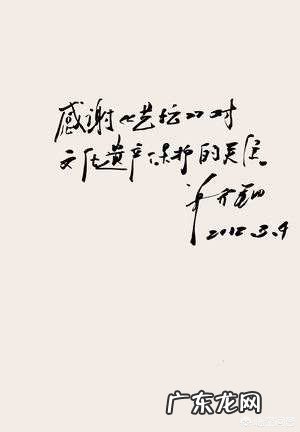 感谢《艺坛》对
文化遗产保护的关注
2012.3.9
广东龙网